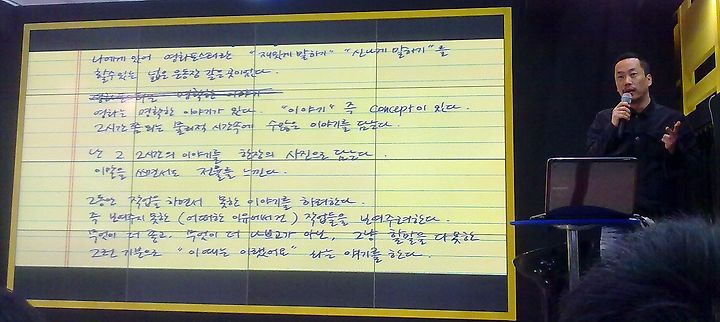 나에게 있어 영화포스터란 "재밌게 말하기" "신나게 말하기"를
할수있는 넓은 운동장 같은곳이였다.
영화포스터는 명확한 이야기
영화는 명확한 이야기가 있다. "이야기" 즉 Concept이 있다.
2시간쯤 되는 물리적 시간속에 수많은 이야기를 담는다.
난 그 2시간의 이야기를 한장의 사진으로 담는다.
이말을 쓰면서도 전율을 느낀다.
그동안 작업을 하면서 못한 이야기를 하려한다.
즉 보여주지못한 (어떠한 이유에서건) 작업들을 보여주려한다.
무엇이 더 좋고, 무엇이 더 나쁘고가 아닌, 그냥 할말을 다 못한
그런 기분으로 "이때는 이랬어요" 라는 얘기를 한다.